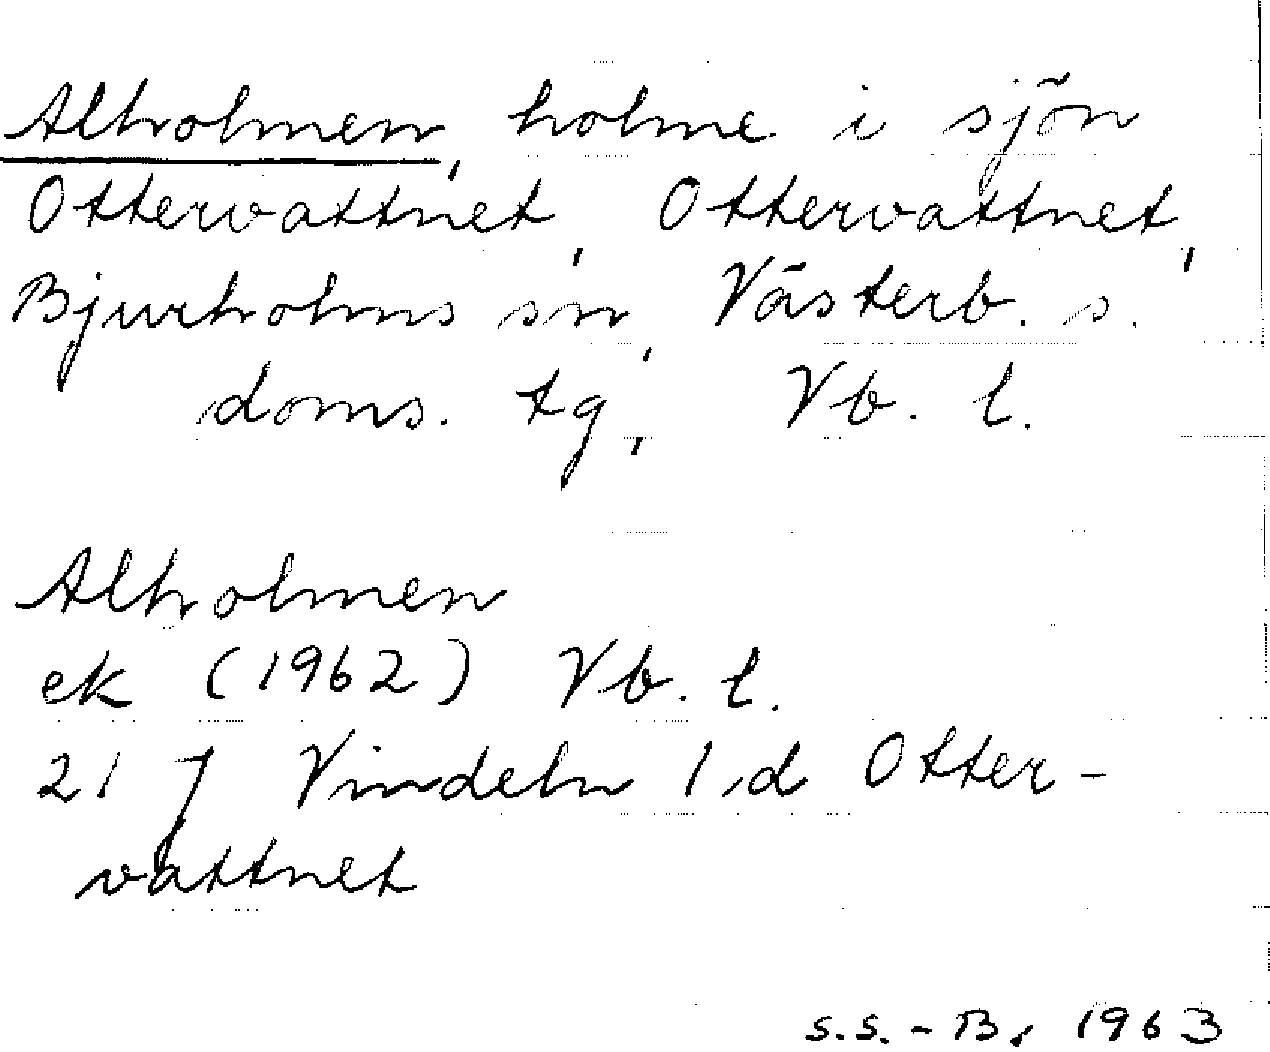 Alholmen, holme i sjön
Ottervattnet, Ottervattnet,
Bjurholms sn, Västerb. s.
doms. tg, Vb. l.
Alholmen
ek (1962) Vb. l.
21 J Vindeln 1 d Otter-
vattnet
S.S.-B. 1963